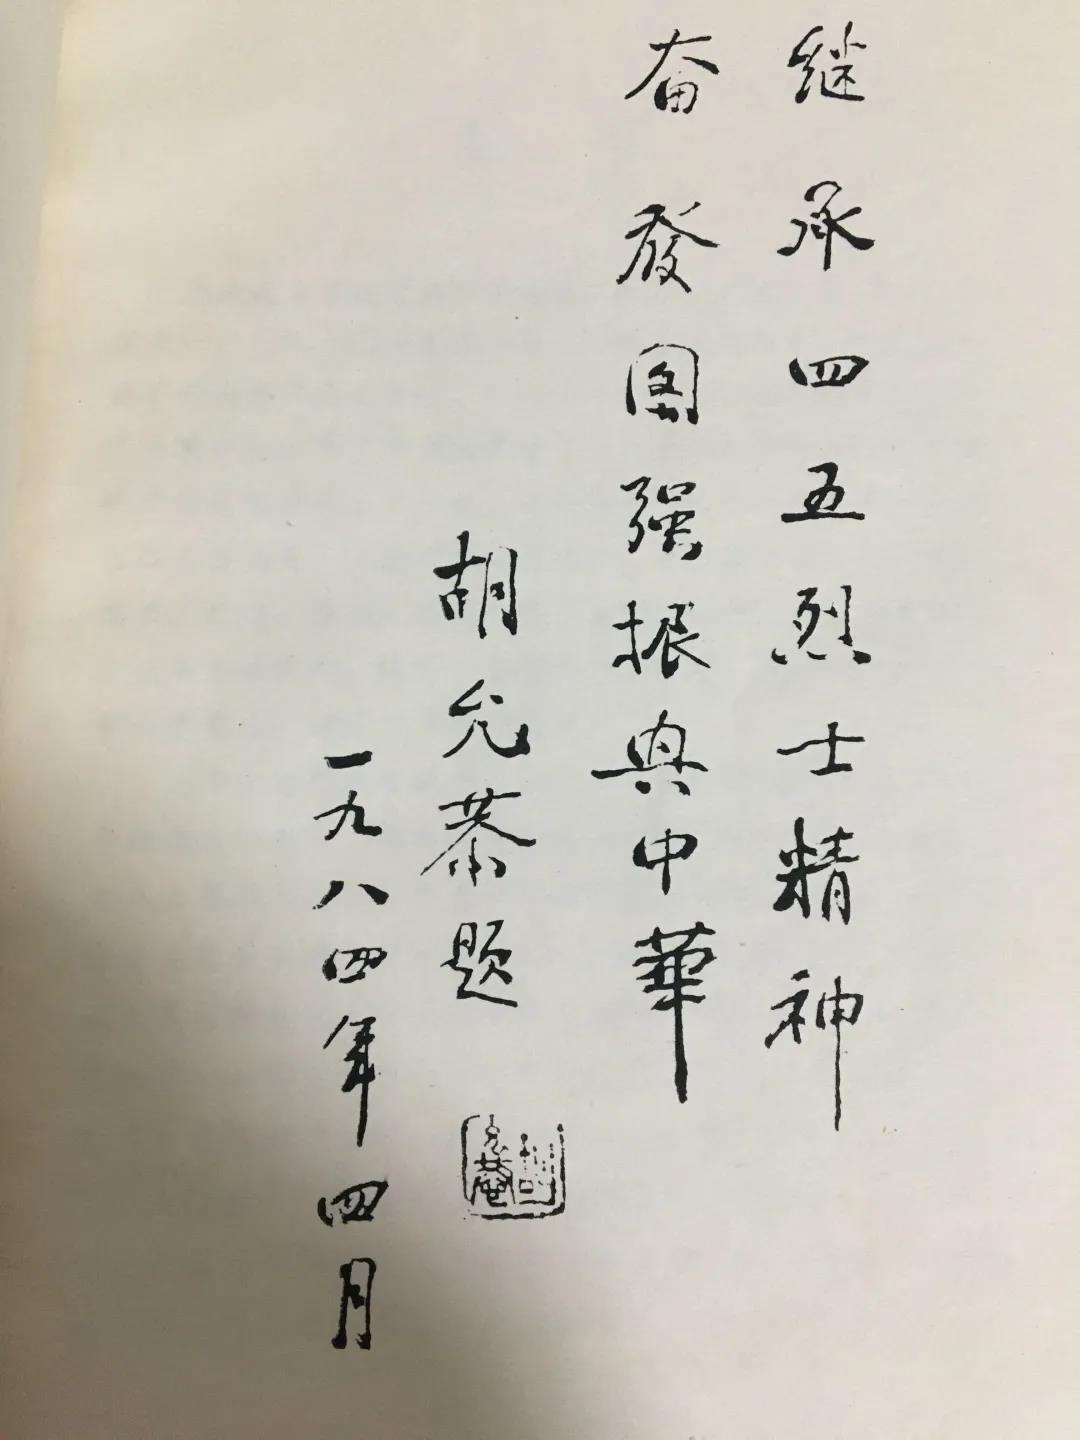 继承四五烈士精神
奋發图强振興中華
胡允恭题
一九八四年四月